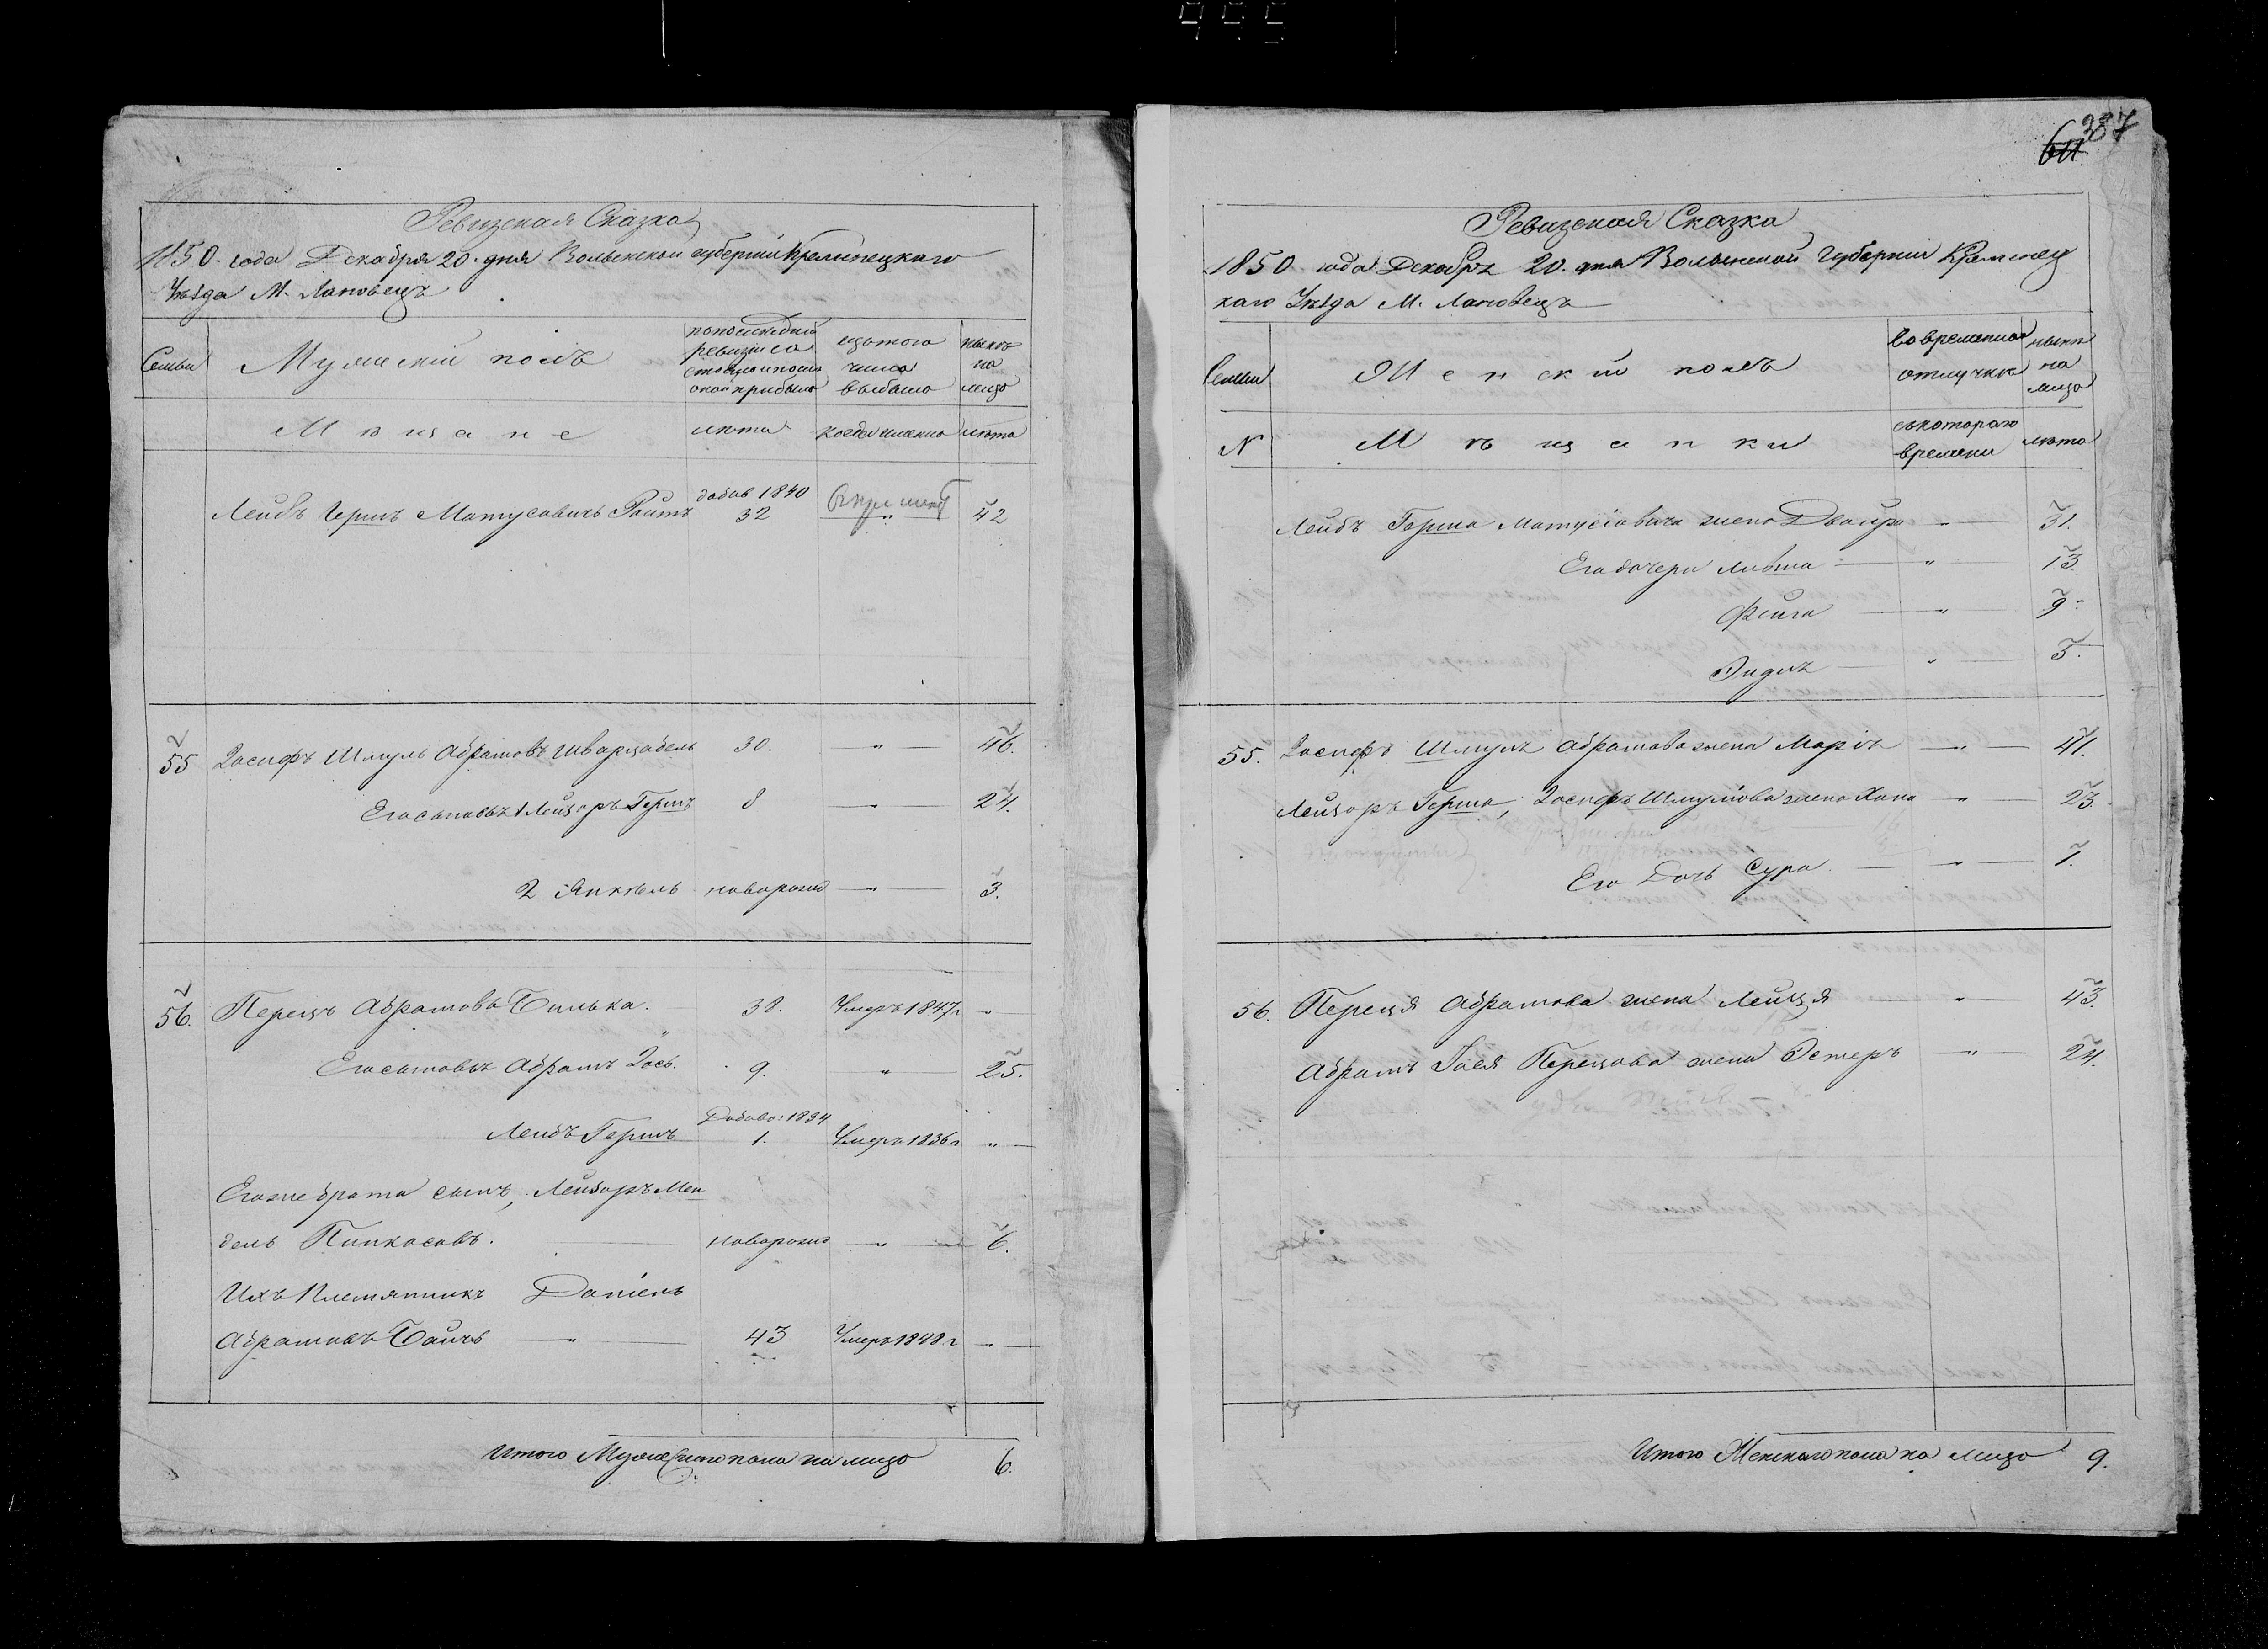 387
Ревизская Сказка
1850 года Декабря 20 дня Волынской губернии Кременецкаго
Уѣзда М. Лановецъ
Семьи
Мужескій полъ
по последней
ревизіи со
стояло и после
оной прибыло
изъ того
числа
выбыло
нынѣ
на
лицо
Мѣщане
лѣта
когда именно
лѣта
Лейбъ Гершъ Матусовичъ Ройтъ
добав 1840
32
"
42
55 Іосифъ Шмуль Абрамовъ Шварцабель 30. " 46.
Его сыновья 1 Лейзоръ Гершъ 8 " 24.
2 Янкель новорожд " 3.
56. Перецъ Абрамовъ Билька. 38. Умеръ 1847 г "
Его сыновья Абрамъ Іось. 9. " 25.
Лейбъ Гершъ Добав: 1834 1. Умеръ 1836 г "
Его же брата сынъ, Лейзоръ Мен
дель Пинкасовъ. новорожд " 6.
Ихъ Племянникъ Даніель
Абрамовъ " 43 Умеръ 1848 г
Итого Мужескаго пола на лицо 6.
Ревизская Сказка
1850 года Декабря 20 дня Волынской Губернии Кременец
каго Уѣзда М. Лановецъ
Семьи
Женский полъ
Во временной
отлучкѣ
нынѣ
на
лицо
N
Мѣщанки
съ котораго
времени
лѣта
Лейбъ Герша Матусовича жена Двойра " 31.
Его дочери " 13
Фейга " 9
" 5.
55. Іосифъ Шмуля Абрамова жена Марія " 41.
Лейзоръ Герша, Іосифъ Шмулiова жена Хана " 23.
Его Дочь Сура " 1.
56. Переця Абрамова жена " 43.
Абрамъ Іося Перецова жена Эстеръ " 24.
Итого Женскаго пола на лицо 9.